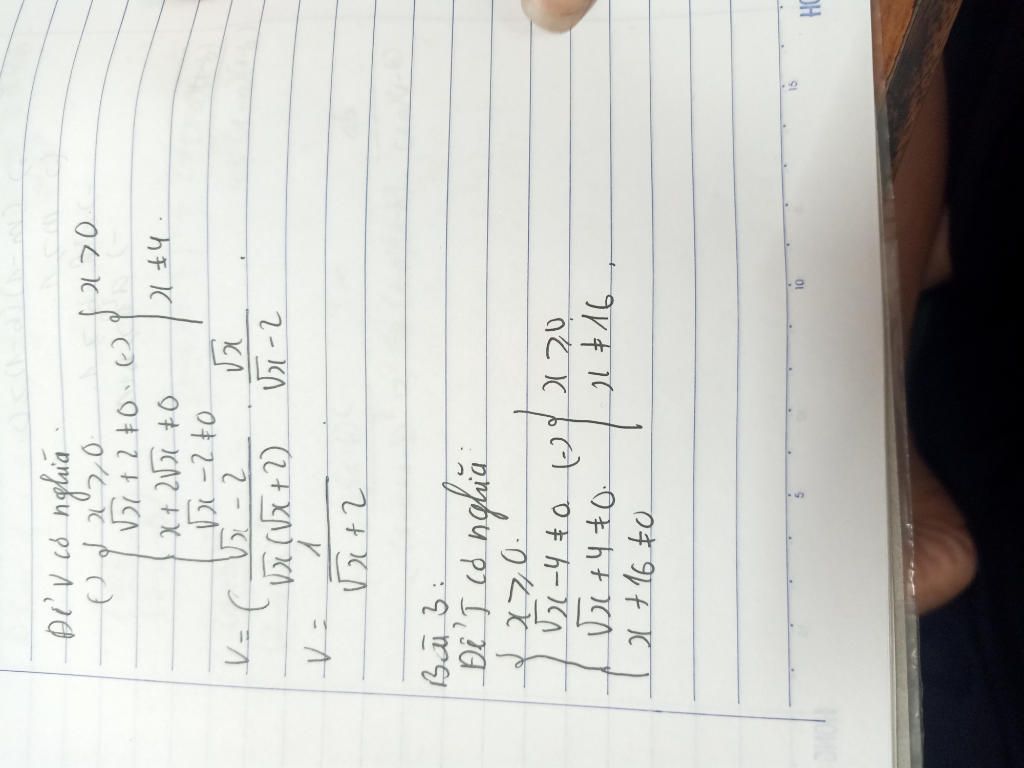 Để V có nghĩa:
(-) { x ≥ 0.
√x + 2 ≠ 0. (-) { x > 0.
x + 2√x ≠ 0 { x ≠ 4.
√x - 2 ≠ 0
V = ( √x - 2 / √x(√x + 2) . √x / √x - 2 .
V = 1 / √x + 2 .
Bài 3:
Để J có nghĩa:
{ x ≥ 0.
√x - 4 ≠ 0 (-) { x ≥ 0
√x + 4 ≠ 0. { x ≠ 16,
x + 16 ≠ 0
5 10 15